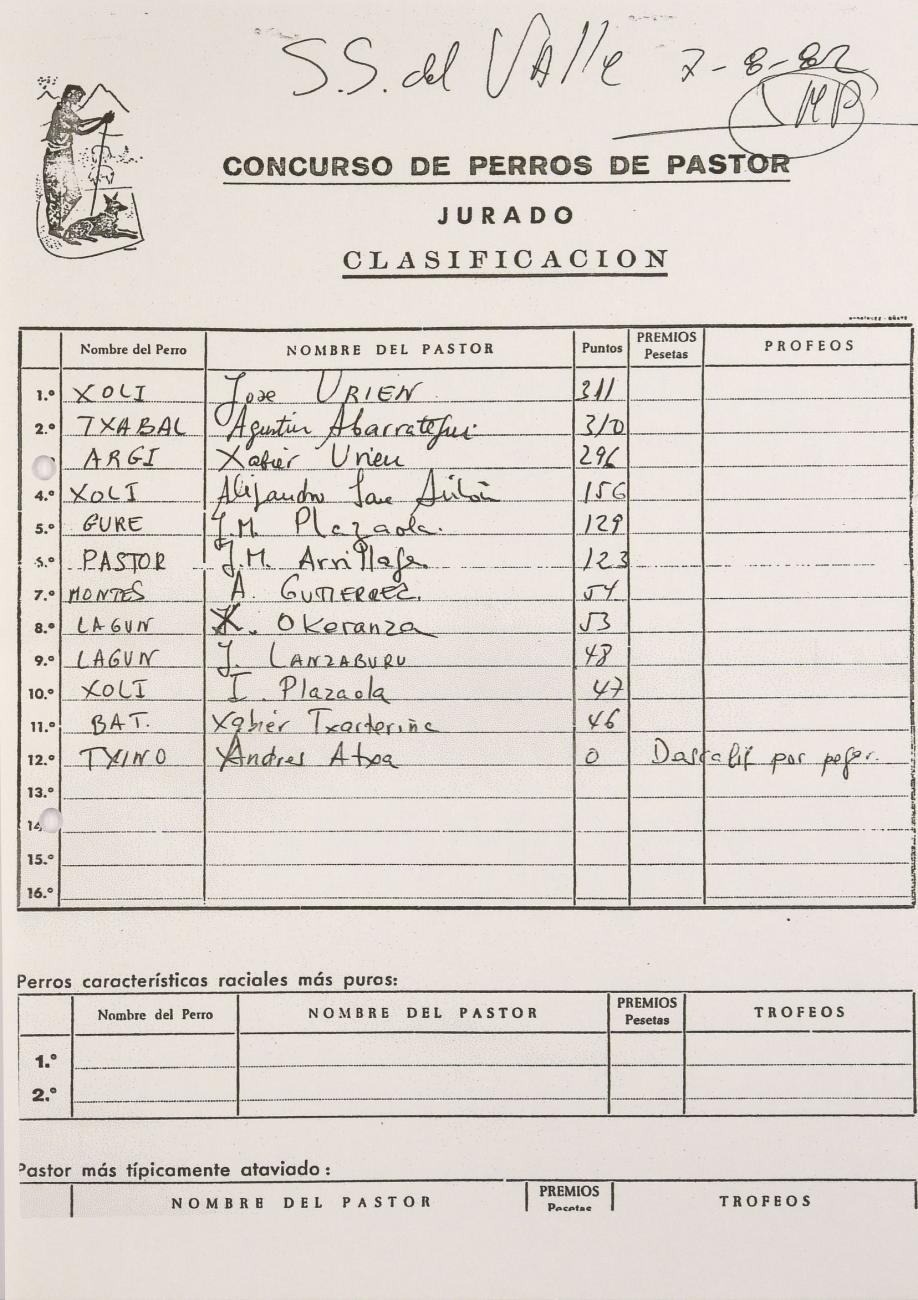 S.S. del Valle 7-8-82
CONCURSO DE PERROS DE PASTOR
JURADO
CLASIFICACION
Nombre del Perro NOMBRE DEL PASTOR Puntos PREMIOS Pesetas PROFEOS
1.º XOLI Jose URIEN 311
2.º TXABAL Agustin Abarrategui 310
ARGI Xabier Urien 296
4.º XOLI Alejandro San 156
5.º GURE J.M. Plazaola. 129
PASTOR J.M. Arrillaga 123
7.º MONTES A. GUTIERREZ. 54
8.º LAGUN K. Okeranza 53
9.º LAGUN J. LANZABURU 48
10.º XOLI I. Plazaola 47
11.º BAT. Xabier 46
12.º TXINO Andres Atxa 0 Descalif por pegar.
13.º
14
15.º
16.º
Perros características raciales más puras:
Nombre del Perro NOMBRE DEL PASTOR PREMIOS Pesetas TROFEOS
1.º
2.º
Pastor más típicamente ataviado:
NOMBRE DEL PASTOR PREMIOS Pesetas TROFEOS